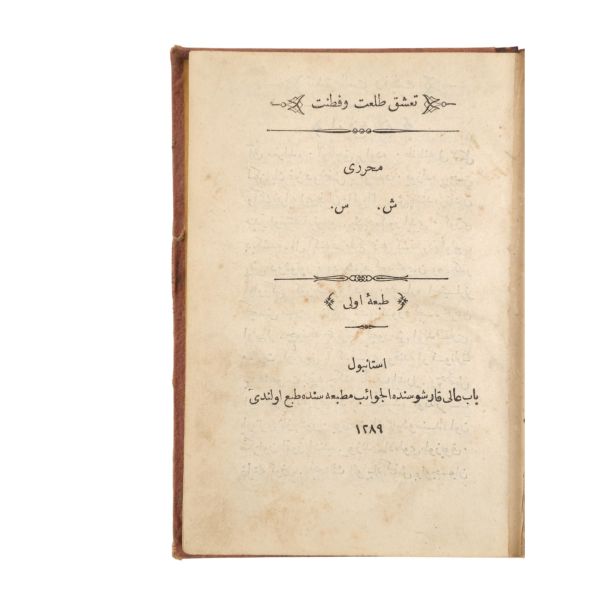 تعشق طلعت وفطنت
محرری
ش. س.
طبعهٔ اولی
استانبول
باب عالی قارشوسنده الجوائب مطبعه سنده طبع اولندی
١٢٨٩